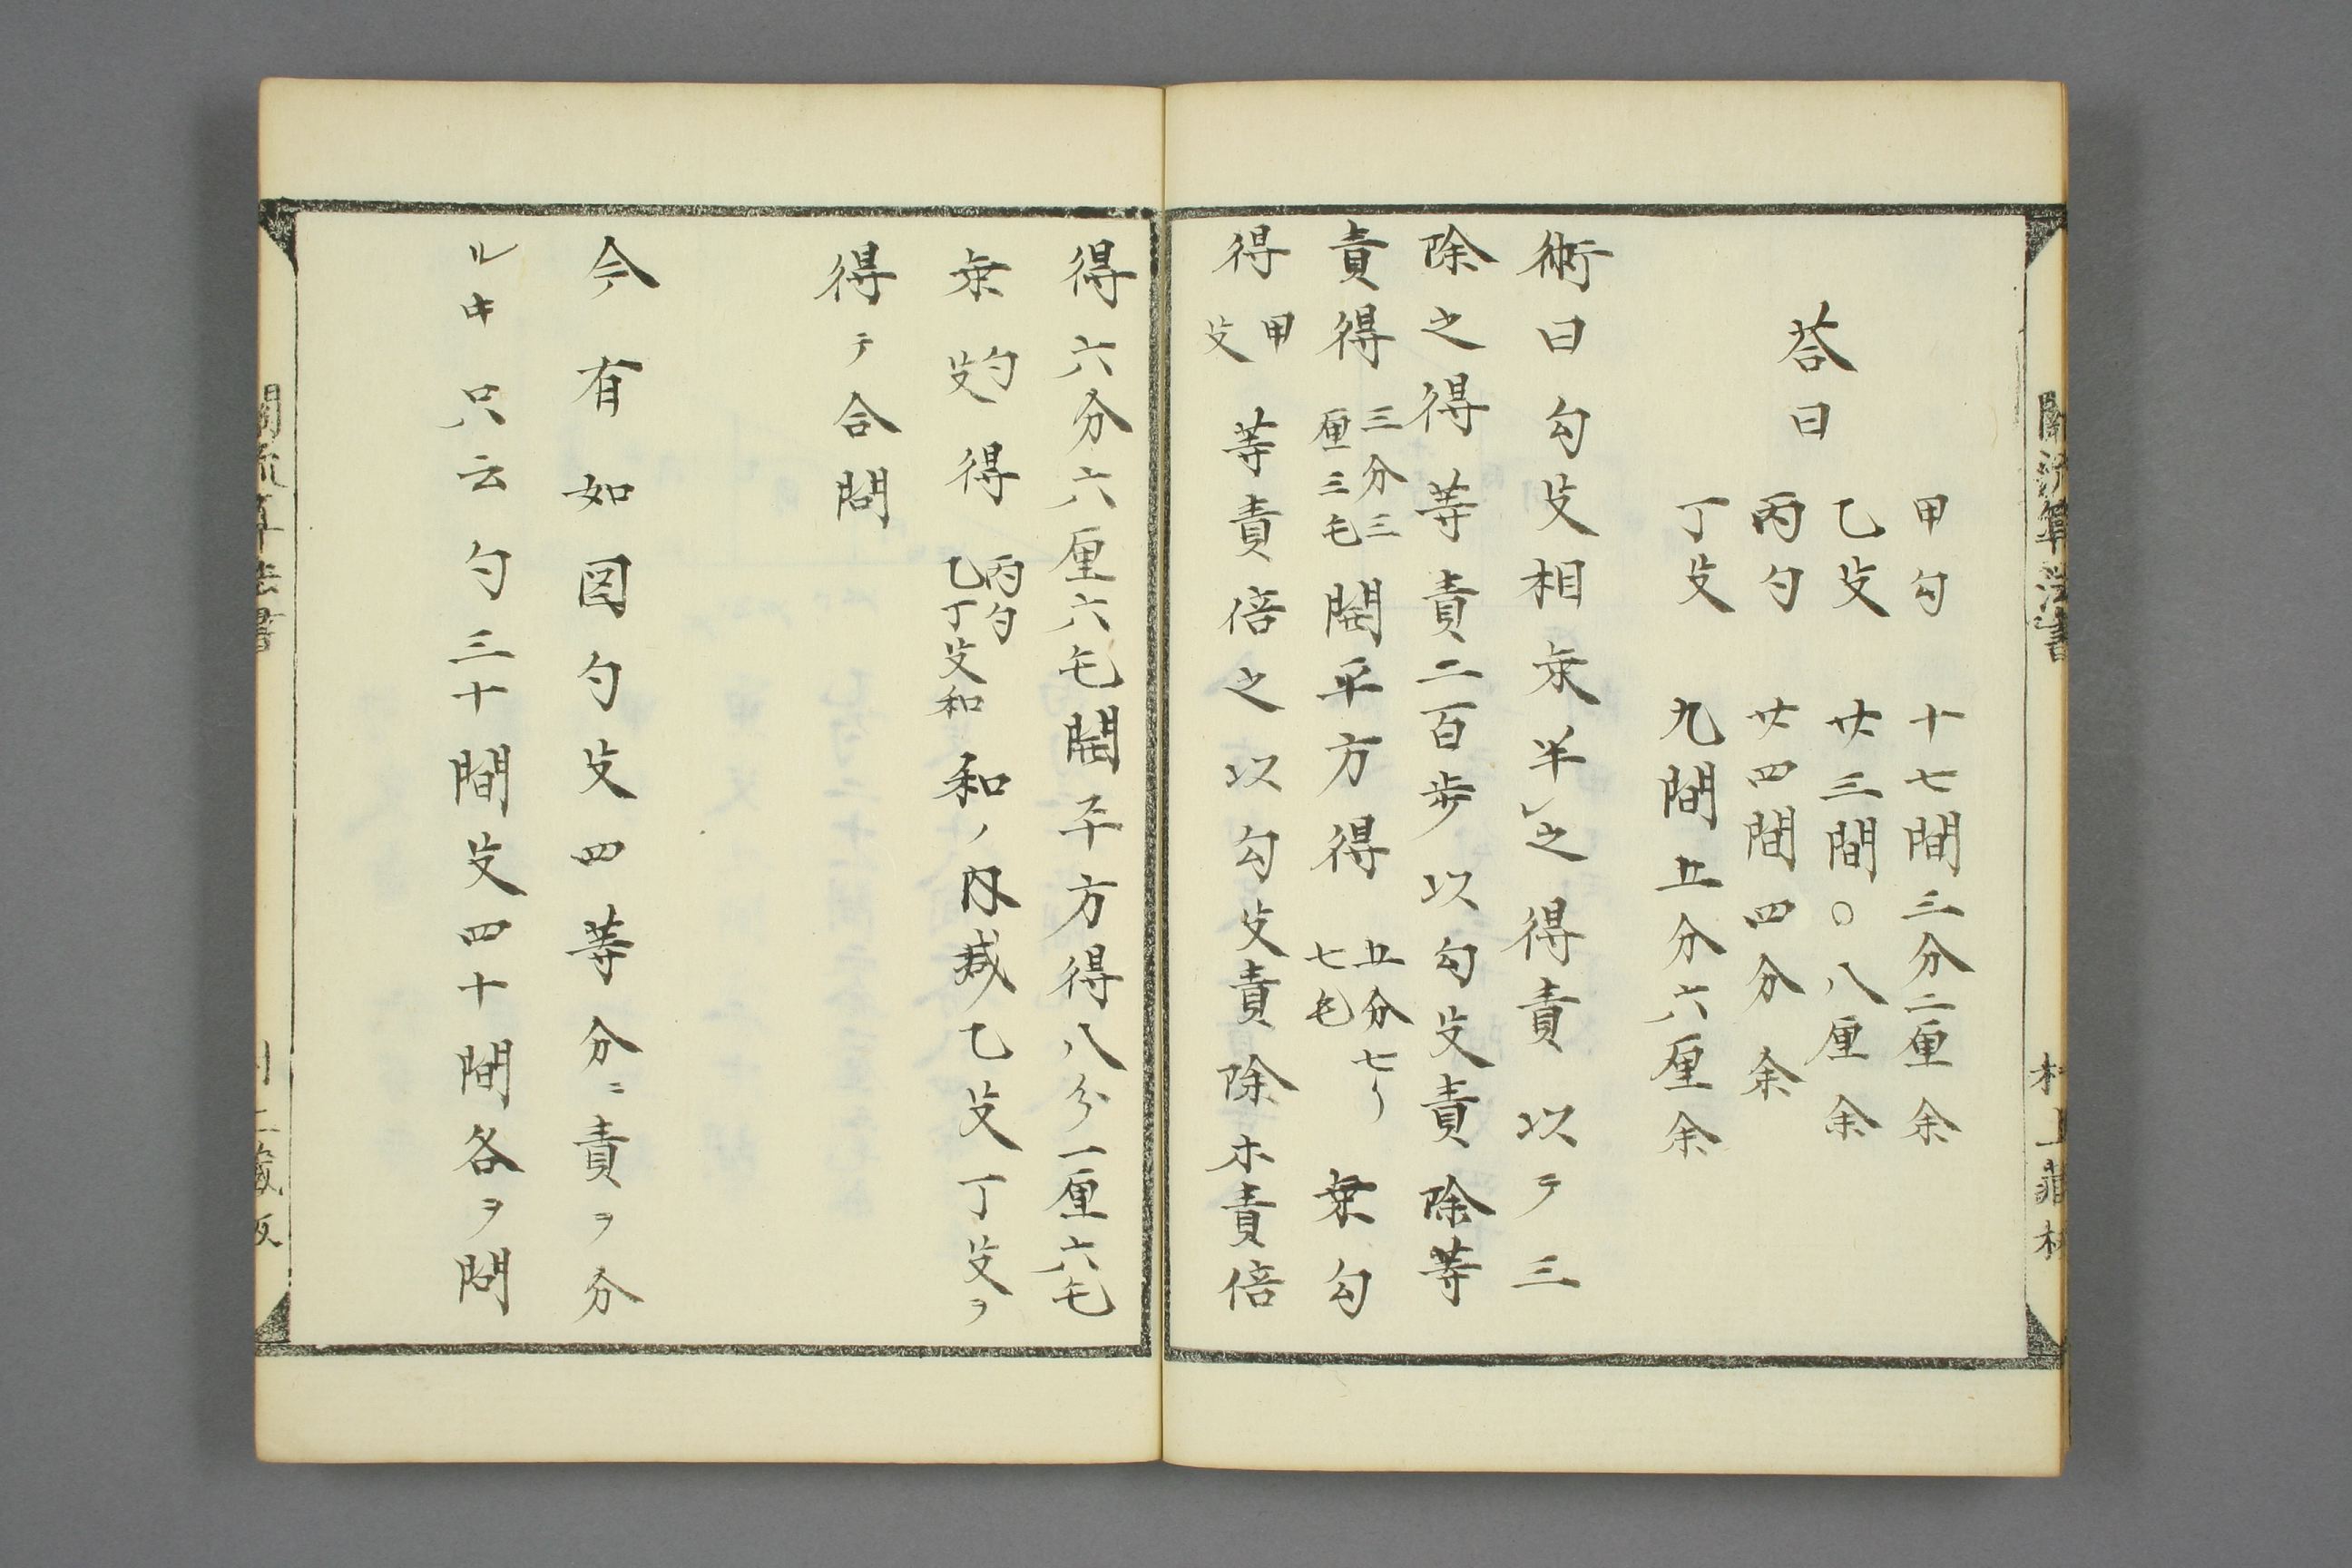 關流算法書
村上藏板
荅曰
甲勾 十七間三分二厘余
乙攴 廿三間〇八厘余
丙勾 廿四間四分余
丁攴 九間五分六厘余
術曰勾攴相乗半レ之得責以テ三
除之得等責二百歩以勾攴責除等
責得三分三厘三毛開平方得五分七リ七毛乗勾
得甲攴等責倍之以勾攴責除木責倍
得六分六厘六毛開平方得八分一厘六毛
乗勾攴得丙勾乙丁攴和和ノ内减乙攴丁攴ヲ
得テ合問
今有如図勾攴四等分ニ責ヲ分
ルキ只云勾三十間攴四十間各ヲ問
關流算法書
藏板